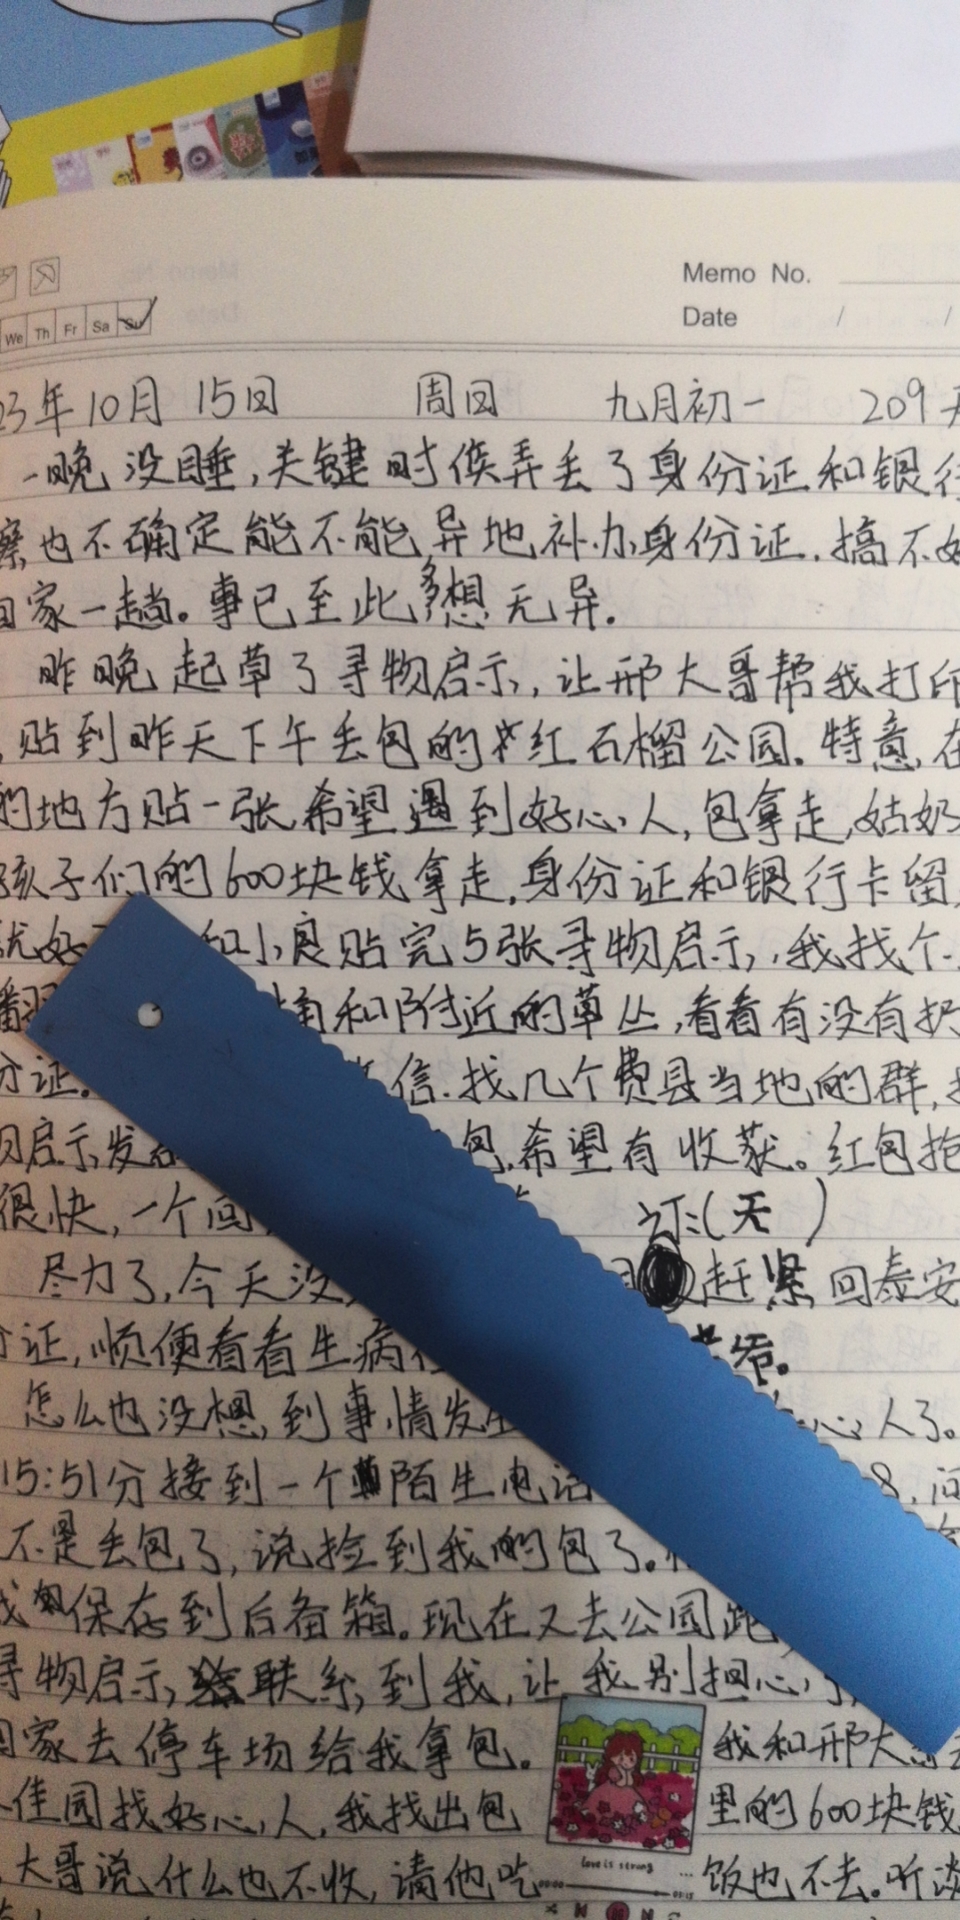 Memo No.
We Th Fr Sa Su
Date / /
23年10月15日 周日 九月初一 209天
一晚没睡,关键时候弄丢了身份证和银行
察也不确定能不能异地补办身份证.搞不好
回家一趟。事已至此多想无异.
昨晚起草了寻物启示,让邢大哥帮我打印
,贴到昨天下午丢包的红石榴公园.特意在
的地方贴一张,希望遇到好心人,包拿走,姑奶
孩子们的600块钱拿走.身份证和银行卡留
就好 和小良贴完5张寻物启示,我找个
翻 桶和附近的草丛,看看有没有扔
份证. 信.找几个费县当地的群,
启示发 包,希望有收获。红包抢
很快,一个回 证:(天)
尽力了,今天没 赶紧回泰安
份证,顺便看看生病 爷.
怎么也没想到事情发生 心人了。
15:51分接到一个陌生电话 8.问
不是丢包了,说捡到我的包了.
我 保存到后备箱.现在又去公园跑
寻物启示,联系到我,让我别担心,
回家去停车场给我拿包. 我和邢大
佳园找好心人,我找出包 里的600块钱
大哥说什么也不收,请他吃 饭也不去.听
love is strong ...
00:00 03:15